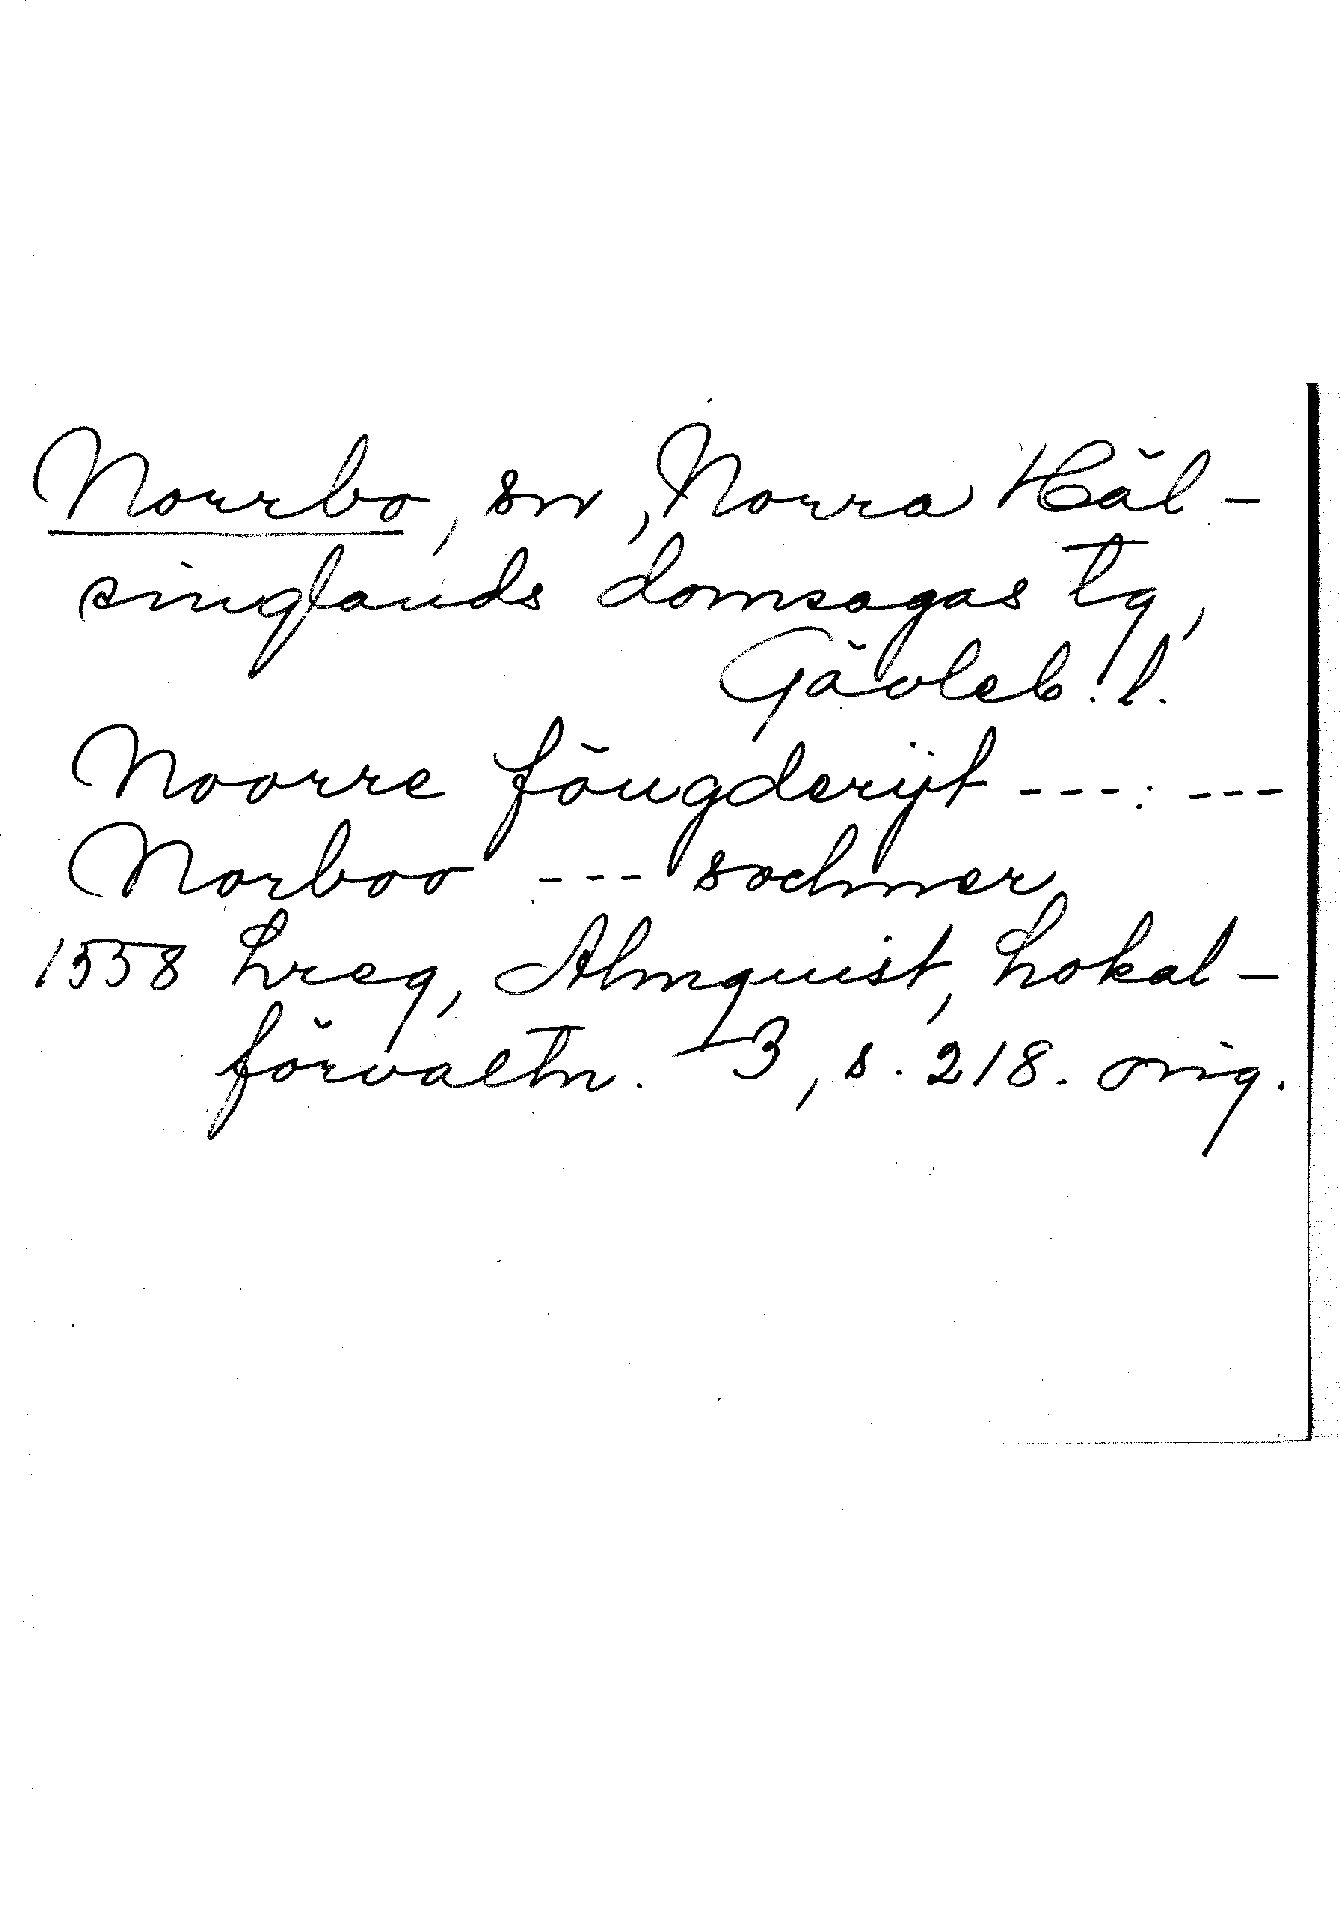 Norrbo, sn, Norra Häl-
singlands domsagas tg,
Gävleb. l.
Noorre föugderijt ---: ---
Norboo --- sochner
1558 Lreg, Almquist, Lokal-
förvaltn. 3, s. 218. orig.